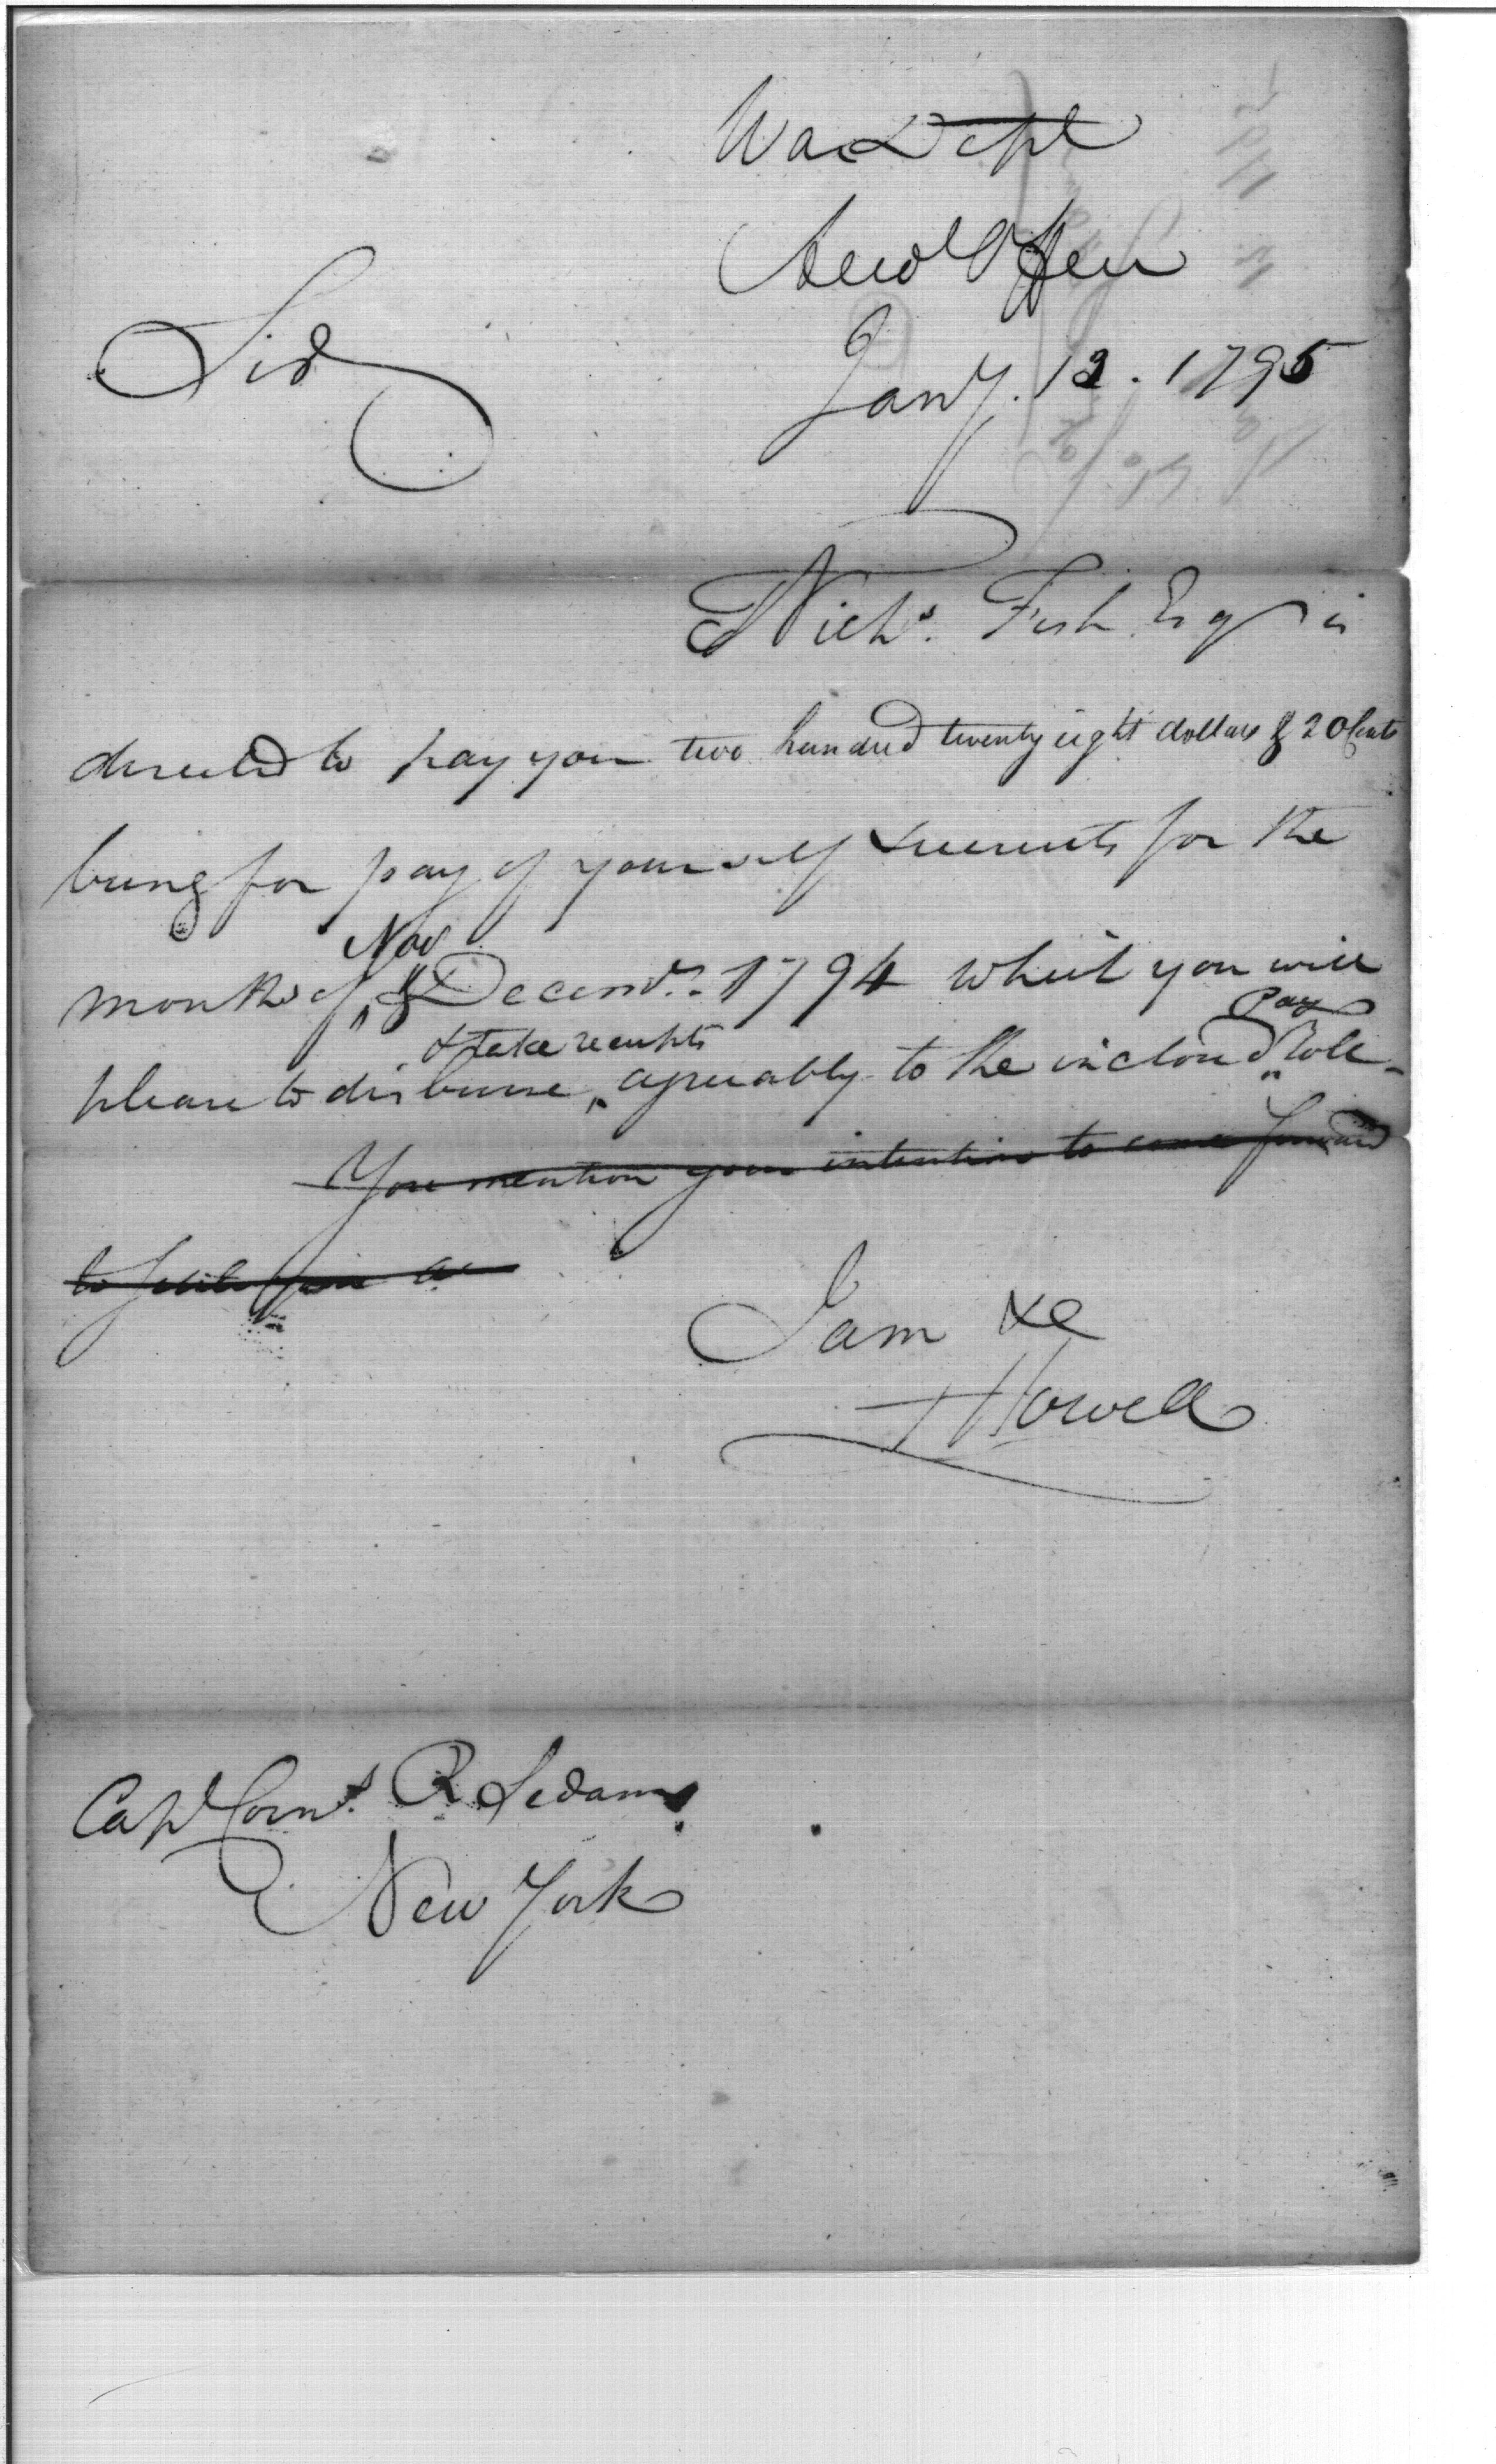 War Dept
Accts Office
Sir
Jany. 13. 1795
Nichs. Fish Esqr is
directed to pay you two hundred twenty eight dollars & 20 Cents
being for pay of yourself & recruits for the
Nov
months of & Decemr. 1794 which you will
Pay
& take receipts
please to disburse, agreeably to the inclosed Roll-
You mention your intention to come forward
to settle your ac
I am &c
Howell
Capt Corns. R Sedam.
New York